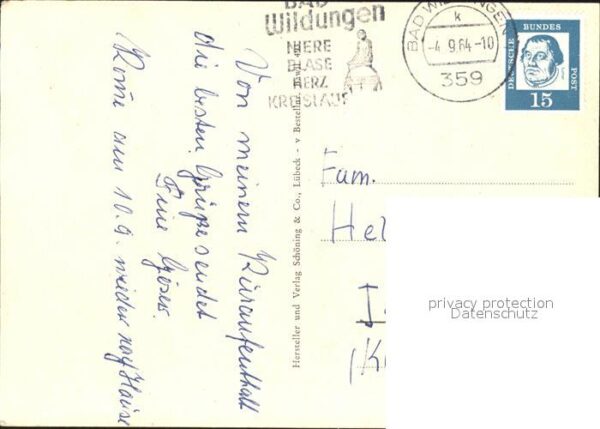 BAD
Wildungen
NIERE
BLASE
HERZ
KREISLAUF
BAD WILDUNGEN
k
-4.9.64-10
359
DEUTSCHE BUNDES POST
15
Von meinem Kuraufenthalt
die besten Grüße sendet
Komme am 10.9. wieder nach Hause
Hersteller und Verlag Schöning & Co., Lübeck - v Bestellnr.
Fam.
Hel
privacy protection
Datenschutz